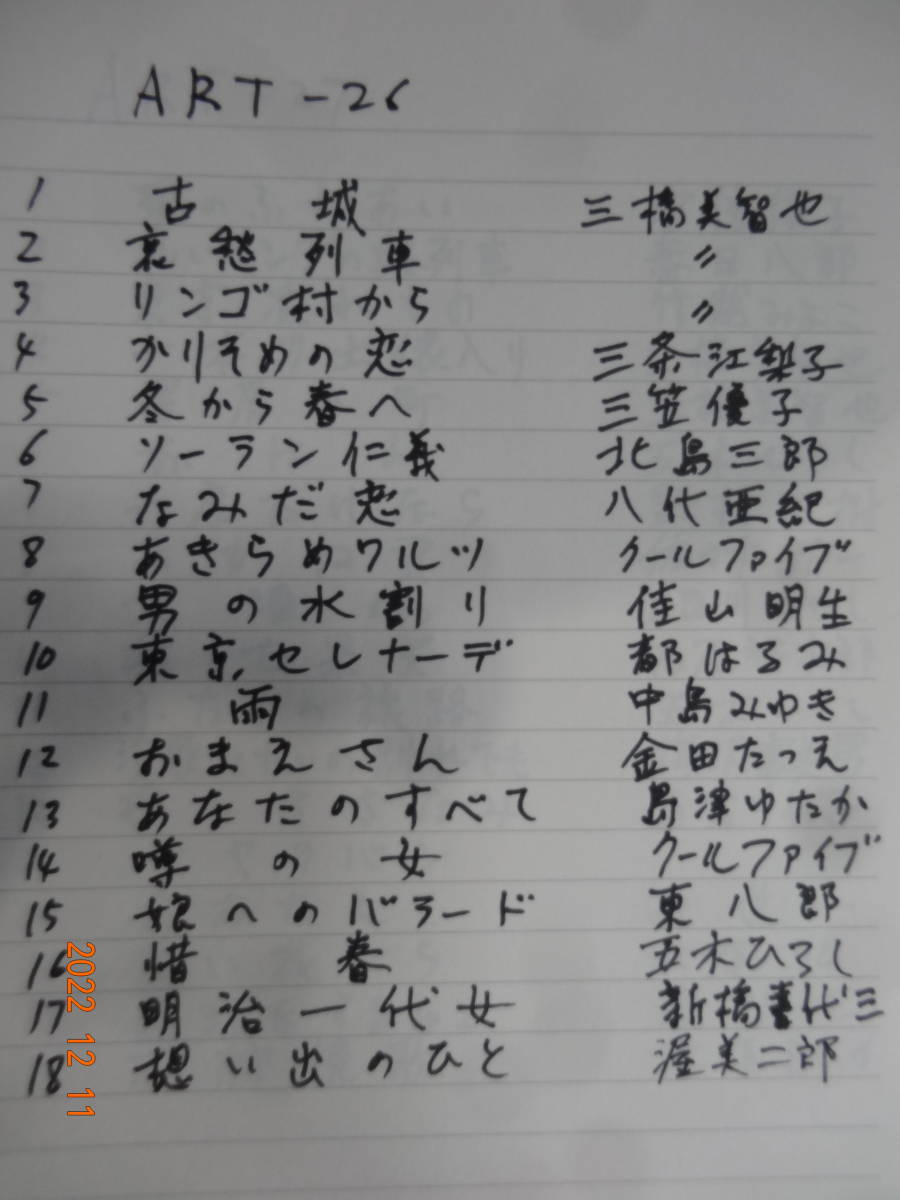 ART-26
1 古城 三橋美智也
2 哀愁列車 〃
3 リンゴ村から 〃
4 かりそめの恋 三条江梨子
5 冬から春へ 三笠優子
6 ソーラン仁義 北島三郎
7 なみだ恋 八代亜紀
8 あきらめワルツ クールファイブ
9 男の水割り 佳山明生
10 東京セレナーデ 都はるみ
11 雨 中島みゆき
12 おまえさん 金田たつえ
13 あなたのすべて 島津ゆたか
14 噂の女 クールファイブ
15 娘へのバラード 東八郎
16 惜春 五木ひろし
17 明治一代女 新橋喜代三
18 想い出のひと 渥美二郎
2022 12 11